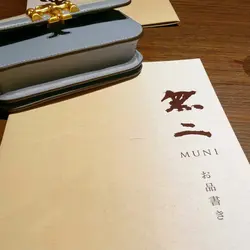 無二
MUNI
お品書き